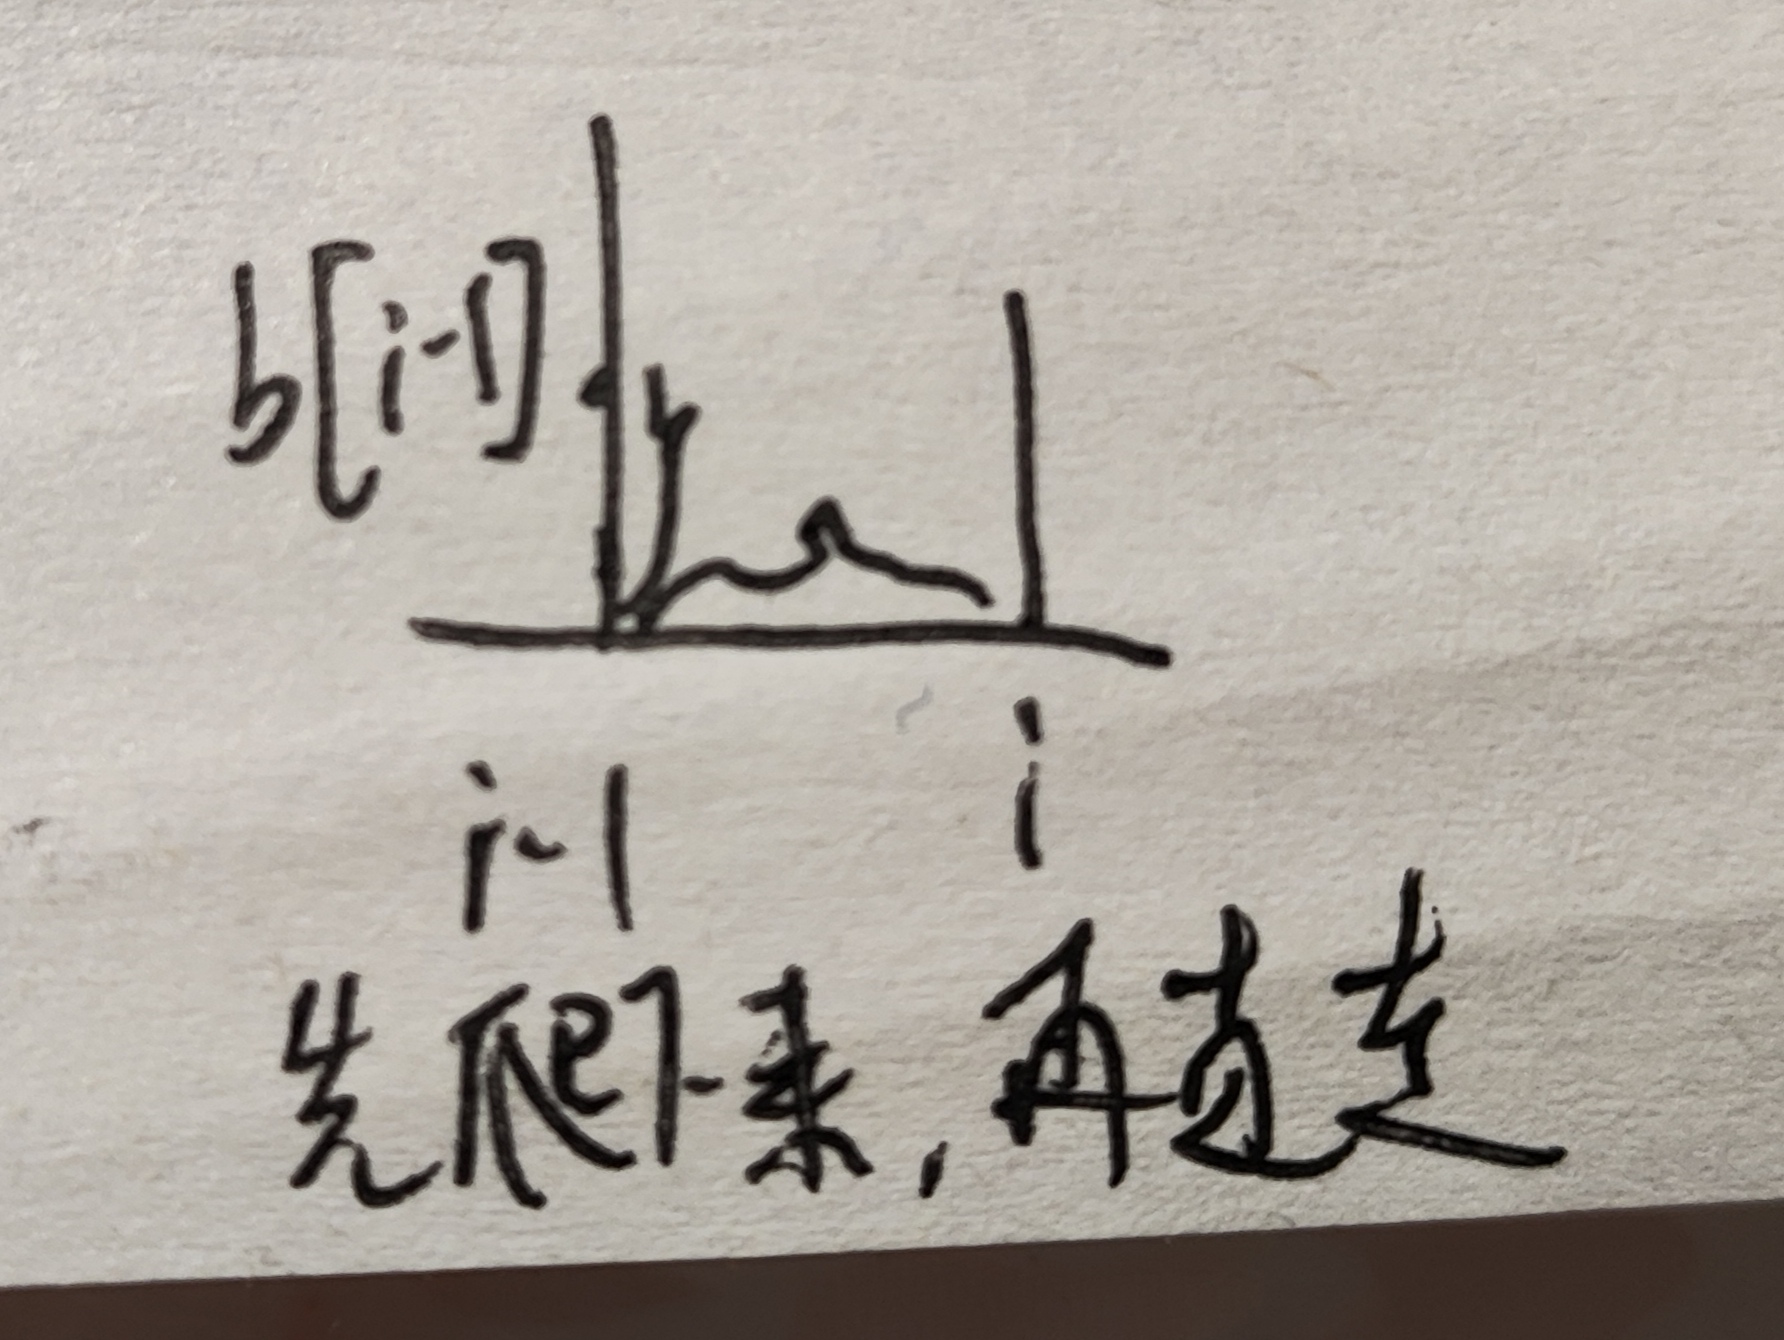 b[i-1]
i-1
i
先爬下来,再直走